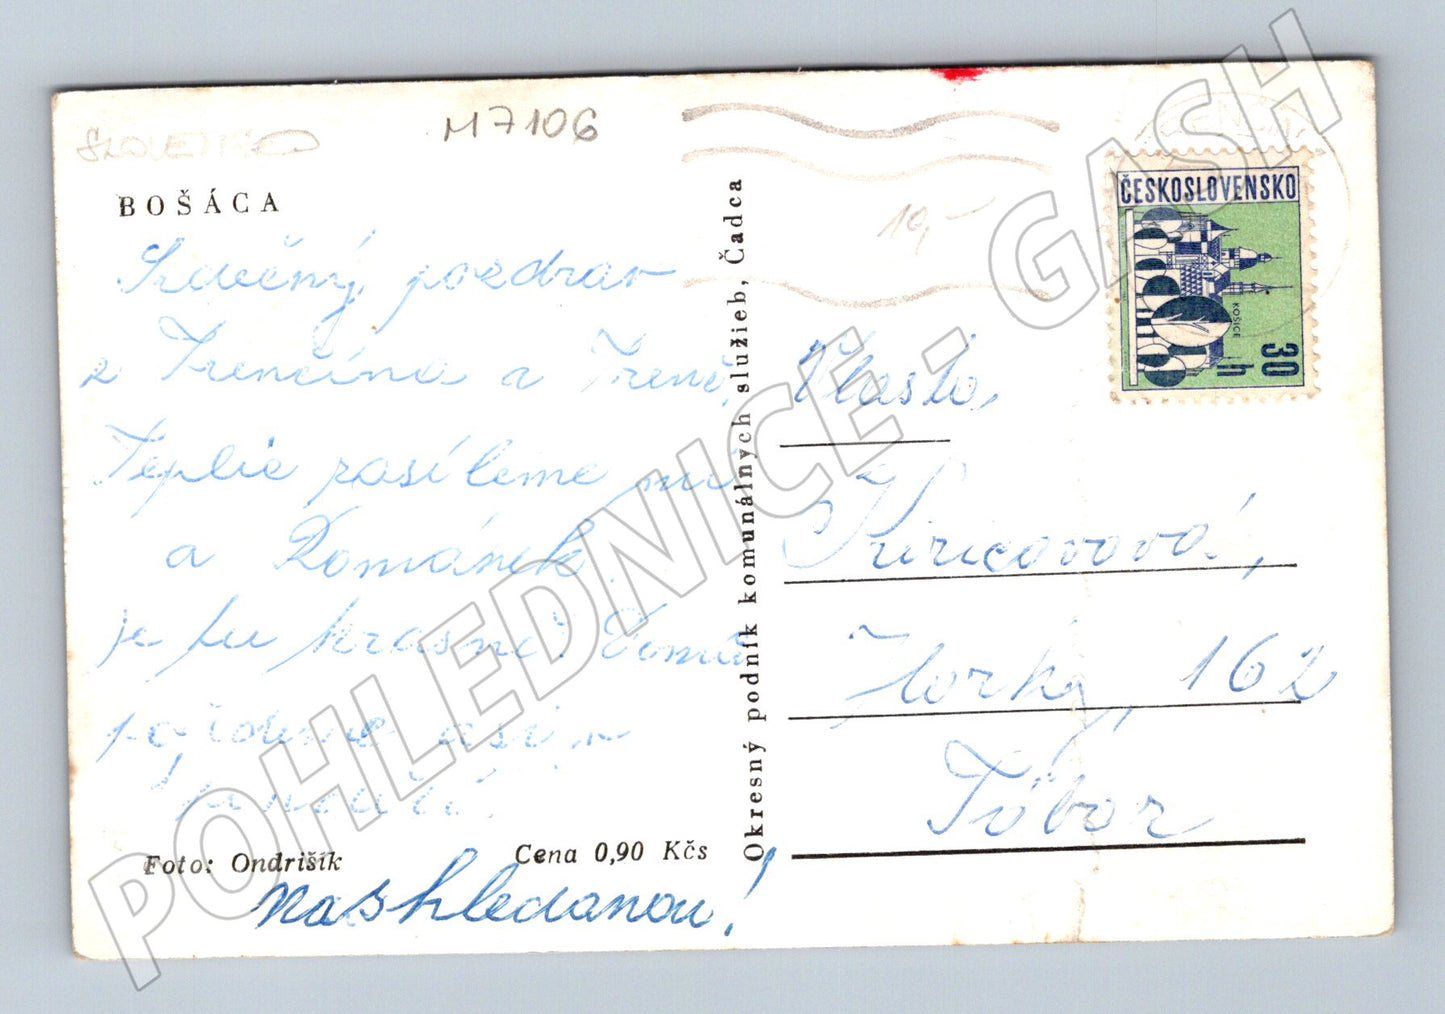 M7106
BOŠÁCA
Srdečný pozdrav
z Trenčína a Trenč.
Teplic zasíleme mi
a Románek.
je tu krasně! Domů
pojedeme asi v
Foto: Ondrišík
Cena 0,90 Kčs
Nashledanou!
Okresný podnik komunálnych služieb, Čadca
19,-
ČESKOSLOVENSKO
KOŠICE
30
h
Vlasta
Horky, 162
Tábor
POHLEDNICE - GASH